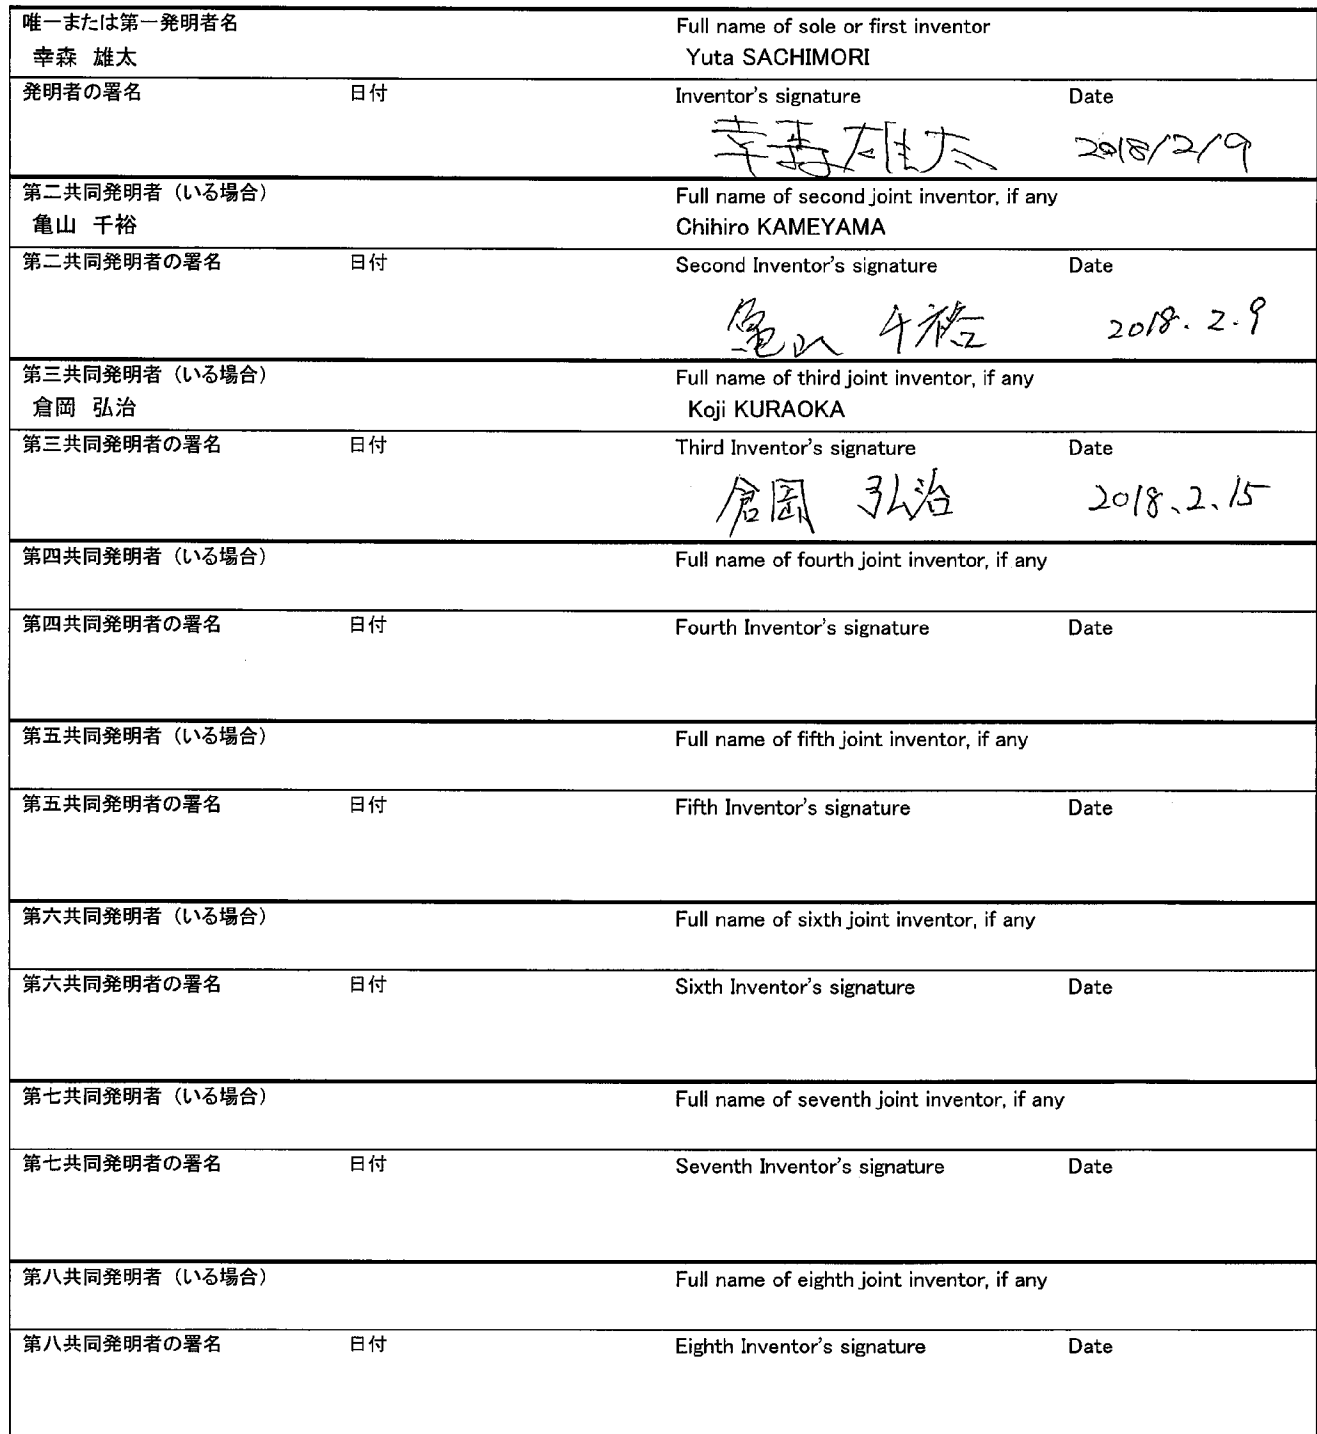 唯一または第一発明者名 Full name of sole or first inventor
幸森 雄太 Yuta SACHIMORI
発明者の署名 日付 Inventor's signature Date
幸森雄太 2018/2/9
第二共同発明者（いる場合） Full name of second joint inventor, if any
亀山 千裕 Chihiro KAMEYAMA
第二共同発明者の署名 日付 Second Inventor's signature Date
亀山 千裕 2018. 2. 9
第三共同発明者（いる場合） Full name of third joint inventor, if any
倉岡 弘治 Koji KURAOKA
第三共同発明者の署名 日付 Third Inventor's signature Date
倉岡 弘治 2018、2、15
第四共同発明者（いる場合） Full name of fourth joint inventor, if any
第四共同発明者の署名 日付 Fourth Inventor's signature Date
第五共同発明者（いる場合） Full name of fifth joint inventor, if any
第五共同発明者の署名 日付 Fifth Inventor's signature Date
第六共同発明者（いる場合） Full name of sixth joint inventor, if any
第六共同発明者の署名 日付 Sixth Inventor's signature Date
第七共同発明者（いる場合） Full name of seventh joint inventor, if any
第七共同発明者の署名 日付 Seventh Inventor's signature Date
第八共同発明者（いる場合） Full name of eighth joint inventor, if any
第八共同発明者の署名 日付 Eighth Inventor's signature Date